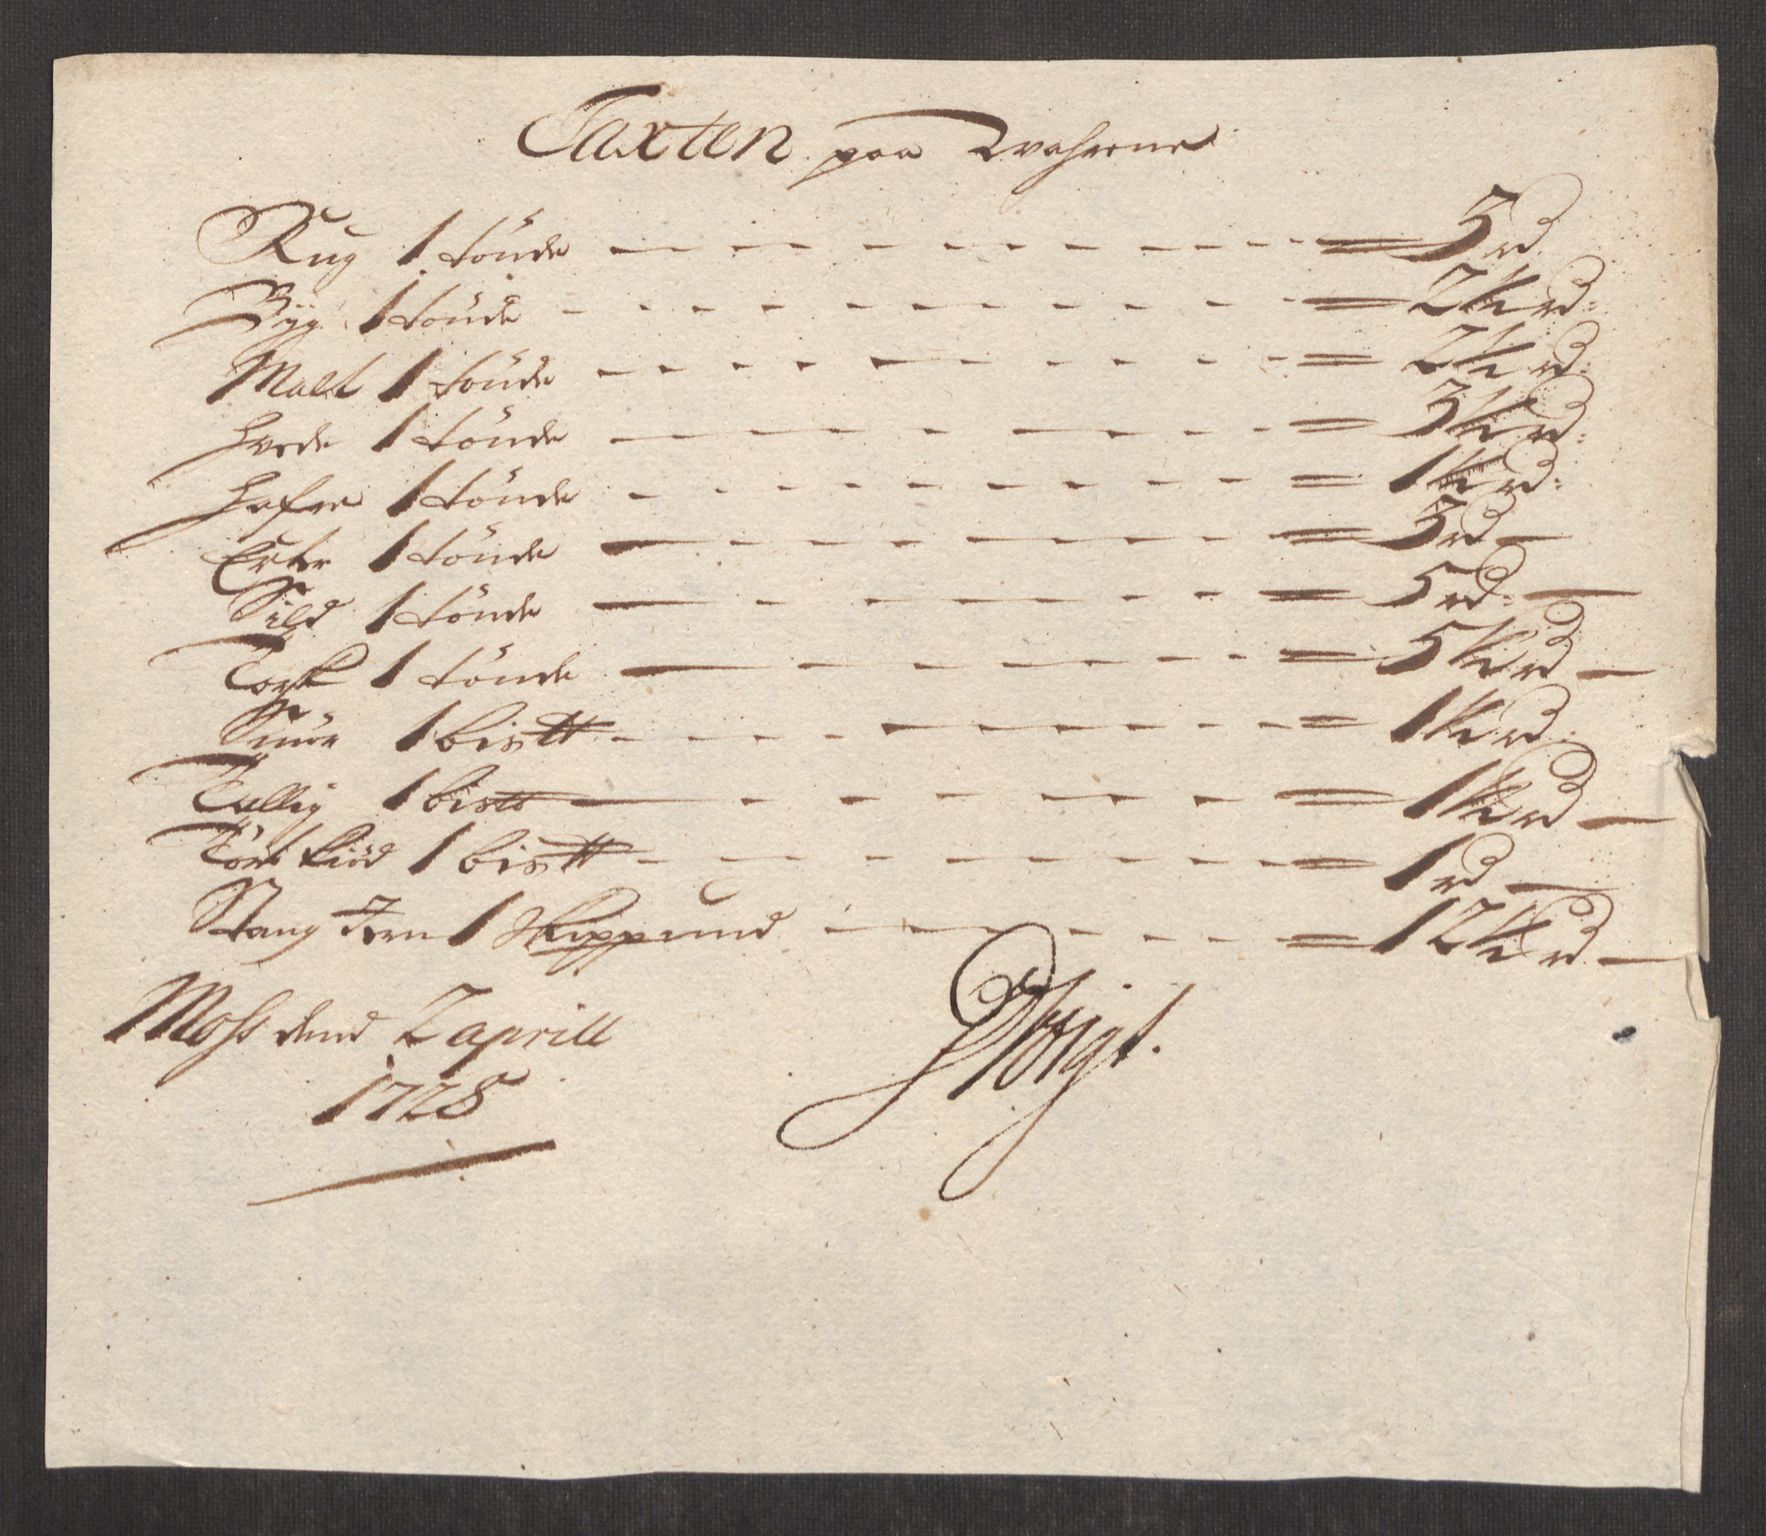 Taxten paa Wahrene
Rug 1 tönde — = 3 rd
Byg 1 tönde — = 2½ rd:
Malt 1 tönde — = 2½ rd:
Hvede 1 tönde — = 3½ rd:
Hafre 1 tönde — = 1½ rd:
Erter 1 tönde — = 3 rd —
Sild 1 tönde — = 5 rd: —
Torsk 1 tönde — = 5½ rd —
Smör 1 bistt — = 1½ rd:
Tallig 1 bistt — = 1½ rd —
Tört kiöd 1 bistt — = 1 rd —
Stang Jern 1 Skippund — = 12½ rd —
Moss dend 2 aprill
1728